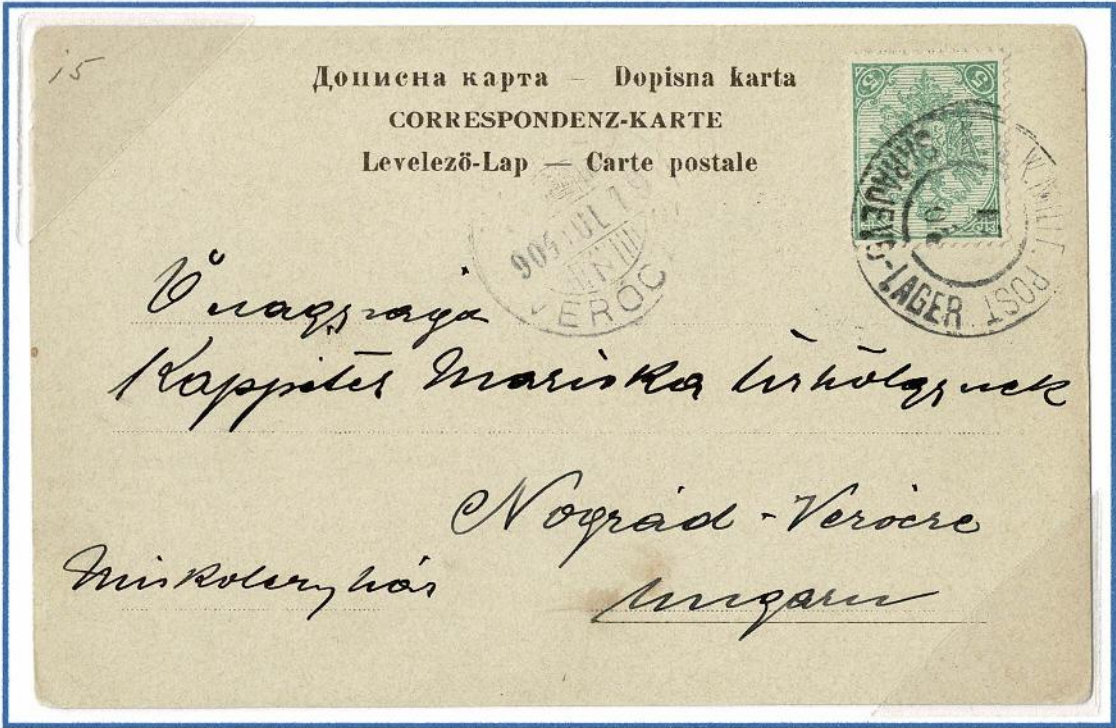 15
Дописна карта – Dopisna karta
CORRESPONDENZ-KARTE
Levelező-Lap — Carte postale
5 5
K.u.K. MILIT. POST
SARAJEVO-LAGER
905 JUL 19
VERŐC
Ő nagysága
Kappiter Mariska úrhölgynek
Nográd-Verőcze
Miskolczy ház
Ungarn